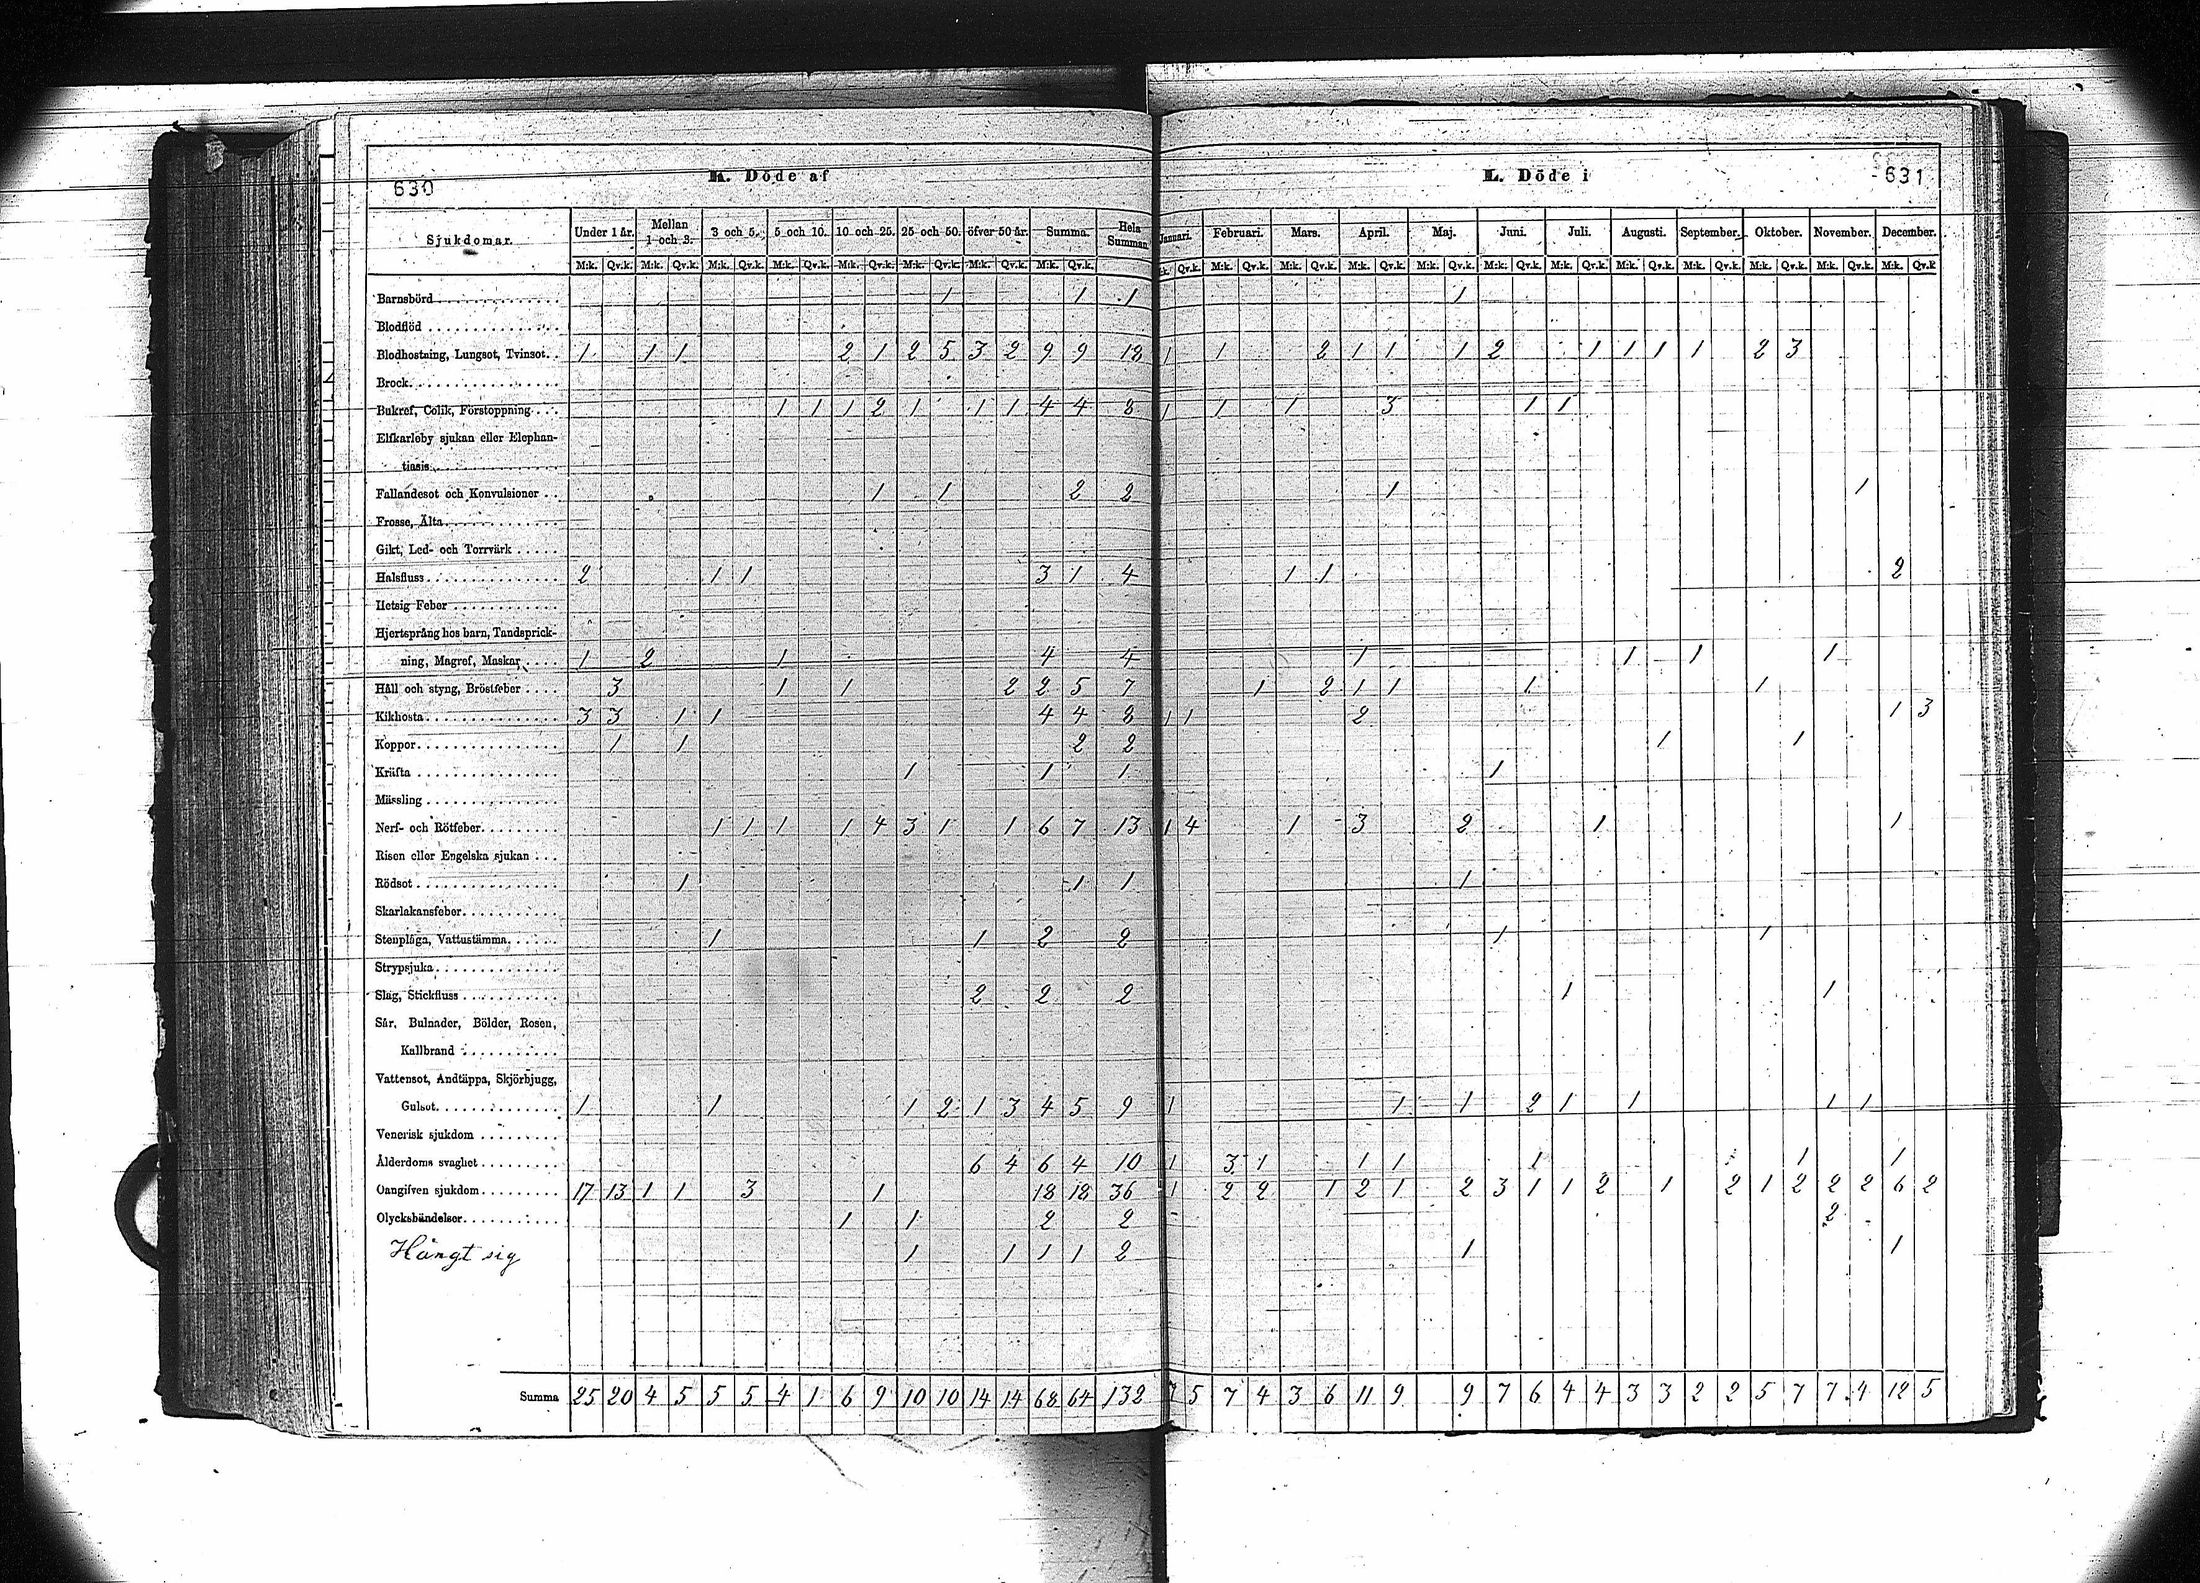 630
K. Döde af
L. Döde i
631
Sjukdomar. Under 1 år. Mellan 1 och 3. 3 och 5. 5 och 10. 10 och 25. 25 och 50. öfver 50 år. Summa. Hela Summan. Januari. Februari. Mars. April. Maj. Juni. Juli. Augusti. September. Oktober. November. December.
M:k. Qv.k. M:k. Qv.k. M:k. Qv.k. M:k. Qv.k. M:k. Qv.k. M:k. Qv.k. M:k. Qv.k. M:k. Qv.k. M:k. Qv.k. M:k. Qv.k. M:k. Qv.k. M:k. Qv.k. M:k. Qv.k. M:k. Qv.k. M:k. Qv.k. M:k. Qv.k. M:k. Qv.k. M:k. Qv.k. M:k. Qv.k. M:k. Qv.k
Barnsbörd 1 1 1 1
Blodflöd
Blodhostning, Lungsot, Tvinsot. 1 1 1 2 1 2 5 3 2 9 9 18 1 1 2 1 1 1 2 1 1 1 1 2 3
Brock
Bukref, Colik, Förstoppning 1 1 1 2 1 1 1 4 4 8 1 1 1 3 1 1
Elfkarleby sjukan eller Elephan-
tiasis
Fallandesot och Konvulsioner 1 1 2 2 1 1
Frosse, Älta
Gikt, Led- och Torrvärk
Halsfluss 2 1 1 3 1 4 1 1 2
Hetsig Feber
Hjertsprång hos barn, Tandsprick-
ning, Magref, Maskar 1 2 1 4 4 1 1 1 1
Håll och styng, Bröstfeber 3 1 1 2 2 5 7 1 2 1 1 1 1
Kikhosta 3 3 1 1 4 4 8 1 1 2 1 3
Koppor 1 1 2 2 1 1
Kräfta 1 1 1 1
Mässling
Nerf- och Rötfeber 1 1 1 1 4 3 1 1 6 7 13 1 4 1 3 2 1 1
Risen eller Engelska sjukan
Rödsot 1 1 1 1
Skarlakansfeber
Stenplåga, Vattustämma 1 1 2 2 1 1
Strypsjuka
Slag, Stickfluss 2 2 2 1 1
Sår, Bulnader, Bölder, Rosen,
Kallbrand
Vattensot, Andtäppa, Skjörbjugg,
Gulsot 1 1 1 2 1 3 4 5 9 1 1 1 2 1 1 1 1
Venerisk sjukdom
Ålderdoms svaghet 6 4 6 4 10 1 3 1 1 1 1 1 1
Oangifven sjukdom 17 13 1 1 3 1 18 18 36 1 2 2 1 2 1 2 3 1 1 2 1 2 1 2 2 2 6 2
Olyckshändelser 1 1 2 2 2
Hängt sig 1 1 1 1 2 1 1
Summa 25 20 4 5 5 5 4 1 6 9 10 10 14 14 68 64 132 7 5 7 4 3 6 11 9 9 7 6 4 4 3 3 2 2 5 7 7 4 12 5